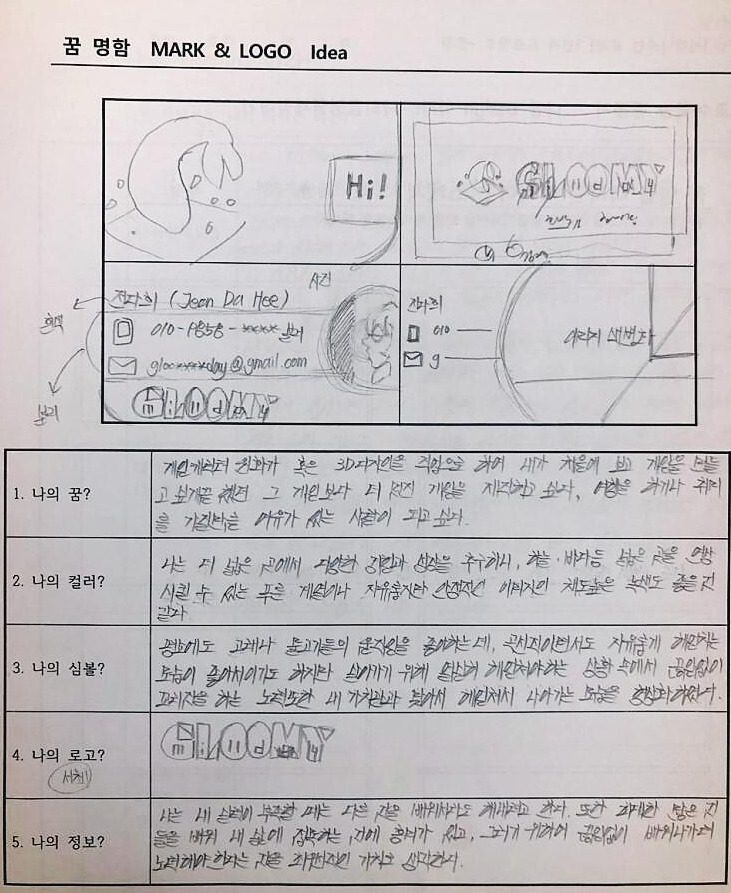 꿈 명함 MARK & LOGO Idea
Hi!
사진
전다희 (Jeon Da Hee)
흰색
010-9858-****
gloo****day@gmail.com
전다희
010
g
1. 나의 꿈?
게임캐릭터 원화가 혹은 3D디자인을 직업으로 하여 내가 처음에 보고 게임을 만들
고 싶게끔 했던 그 게임보다 더 멋진 게임을 제작하고 싶다. 여행을 하거나 취미
를 가질만큼 여유가 있는 사람이 되고 싶다.
2. 나의 컬러?
나는 더 넓은 곳에서 다양한 경험과 성장을 추구하니, 하늘·바다등 넓은 곳을 연상
시킬 수 있는 푸른 계열이나 자유롭지만 안정적인 이미지인 채도높은 녹색도 좋을 것
같다.
3. 나의 심볼?
평소에도 고래나 물고기들의 움직임을 좋아하는데, 곡선적이면서도 자유롭게 헤엄치는
모습이 좋아서이기도 하지만 살아가기 위해 열심히 헤엄쳐야하는 상황 속에서 끊임없이
노력또한 내 가치관과 맞아서 헤엄쳐서 나아가는 모습을 형상화하였다.
4. 나의 로고?
5. 나의 정보?
나는 내 실력이 부족할 때는 다른 것을 배워서라도 해내려고 한다. 또한 최대한 많은 것
들을 배워 내 삶에 접목하는 것에 흥미가 있고, 그러기 위하여 끊임없이 배워나가며
노력해야 한다는 것을 최우선적인 가치로 생각한다.